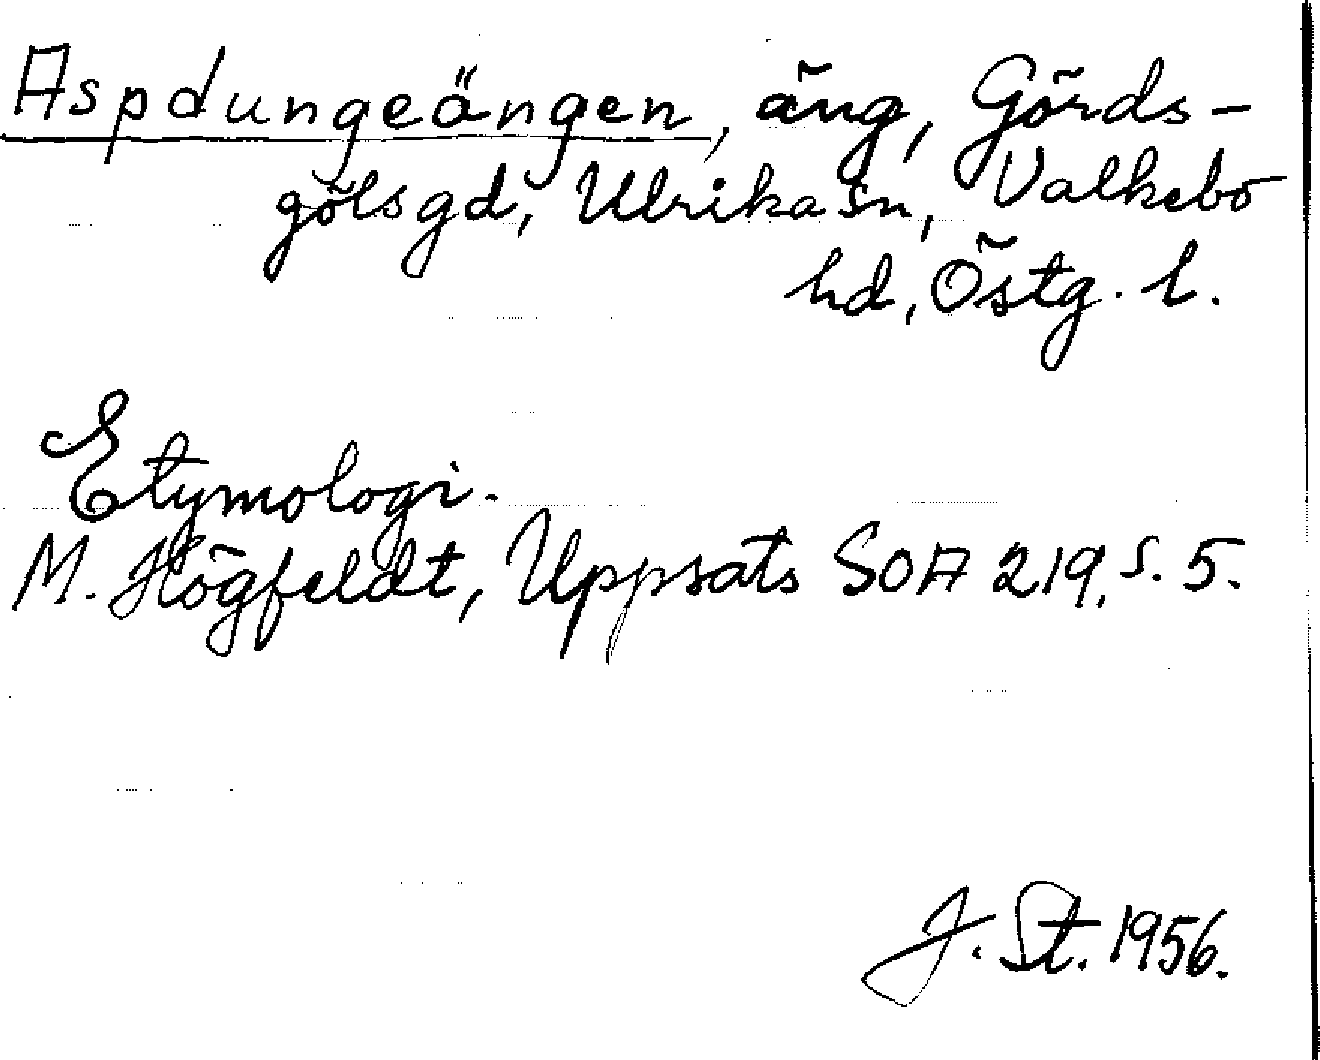 Aspdungeängen, äng, Görds-
gölsgd, Ulrika sn, Valkebo
hd, Östg. l.
Etymologi.
M. Högfeldt, Uppsats SOA 219, s. 5.
J. St. 1956.